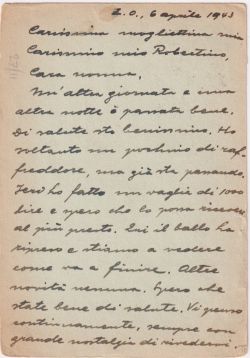 Z.O., 6 aprile 1943
Carissima mogliettina mia
Carissimo mio Robertino,
Cara nonna,
Un'altra giornata e una
altra notte è passata bene.
Di salute sto benissimo. Ho
soltanto un pochino di raf-
freddore, ma già sta passando.
Ieri ho fatto un vaglia di 1000
lire e spero che lo possa ricevere
al più presto. Qui il ballo ha
ripreso e stiamo a vedere
come va a finire. Altre
novità nessuna. Spero che
state bene di salute. Vi penso
continuamente, sempre con
grande nostalgia di rivedervi.